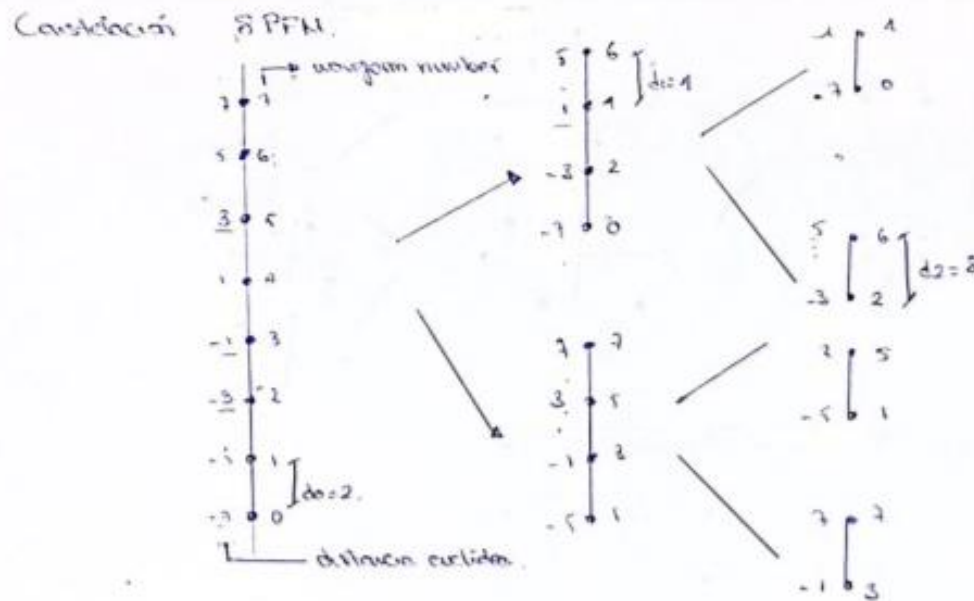 Constelación 8 PFM.
waveform number
7 7
5 6
3 5
1 4
-1 3
-3 2
-5 1
-7 0
d0=2.
distancia euclidea.
5 6
1 4
-3 2
-7 0
d1=4
7 7
3 5
-1 3
-5 1
1 4
-7 0
5 6
-3 2
d2=8
3 5
-5 1
7 7
-1 3